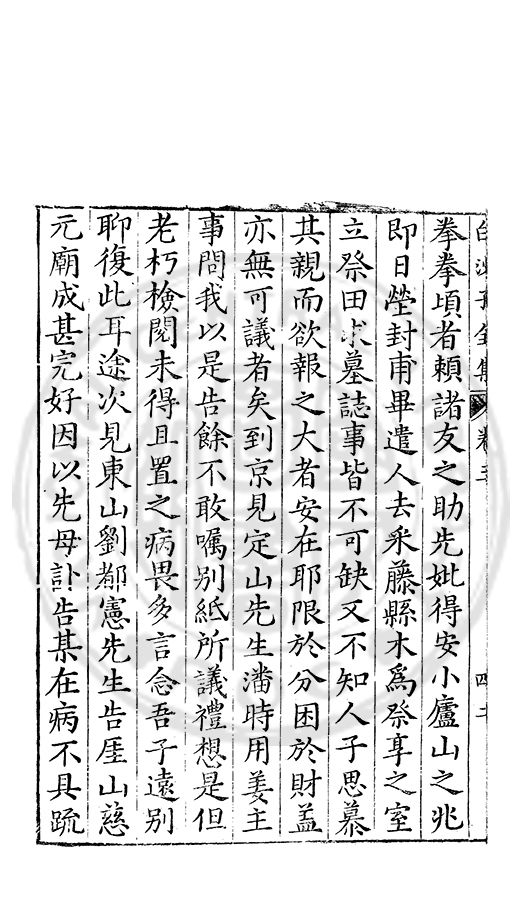 白沙子全集 卷
拳拳頃者賴諸友之助先妣得安小廬山之兆
即日塋封甫畢遣人去采藤縣木爲祭享之室
立祭田求墓誌事皆不可缺又不知人子思慕
其親而欲報之大者安在耶限於分困於財益
亦無可議者矣到京見定山先生潘時用姜主
事問我以是告餘不敢囑別紙所議禮想是但
老朽檢閱未得且置之病畏多言念吾子遠別
聊復此耳途次見東山劉都憲先生告厓山慈
元廟成甚完好因以先母訃告某在病不具疏